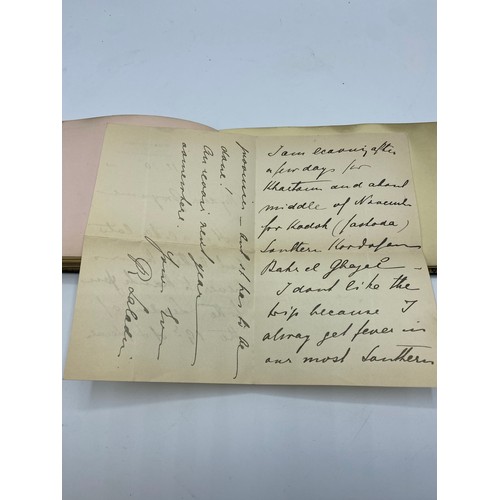 I am leaving after
a few days for
Khartum and about
middle of Novemb
for Kodok (Fashoda)
Southern Kordofan
Bahr el Ghazal
I dont like the
trip because I
alway get fever in
our most Southern
provinces – but it has to be
done!
Au revoir next year
somewhere.
Yours
R Slatin